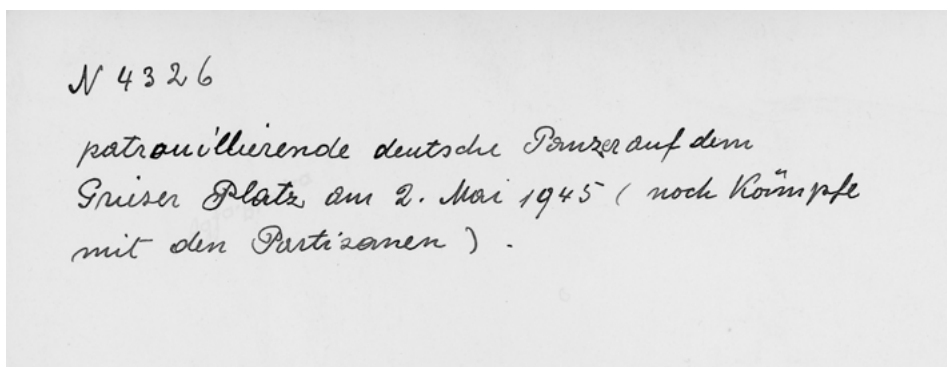 N 4326
patrouillierende deutsche Panzer auf dem
Grieser Platz am 2. Mai 1945 ( noch Kämpfe
mit den Partisanen ) .